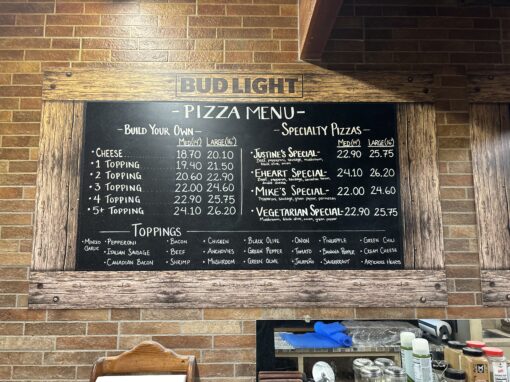 BUD LIGHT
-PIZZA MENU-
-BUILD YOUR OWN-
MED(14") LARGE(16")
• CHEESE... 18.70 20.10
• 1 TOPPING 19.40 21.50
• 2 TOPPING 20.60 22.90
• 3 TOPPING 22.00 24.60
• 4 TOPPING 22.90 25.75
• 5+ TOPPING 24.10 26.20
-SPECIALTY PIZZAS-
MED(14") LARGE(16")
• JUSTINE'S SPECIAL- 22.90 25.75
• EHEART SPECIAL- 24.10 26.20
• MIKE'S SPECIAL- 22.00 24.60
• VEGETARIAN SPECIAL- 22.90 25.75
TOPPINGS
• MINCED GARLIC • PEPPERONI • BACON • CHICKEN • BLACK OLIVE • ONION • PINEAPPLE • GREEN CHILI
• ITALIAN SAUSAGE • BEEF • ANCHOVIES • GREEN PEPPER • TOMATO • BANANA PEPPER • CREAM CHEESE
• CANADIAN BACON • SHRIMP • MUSHROOM • GREEN OLIVE • JALAPEÑO • SAUERKRAUT • ARTICHOKE HEARTS